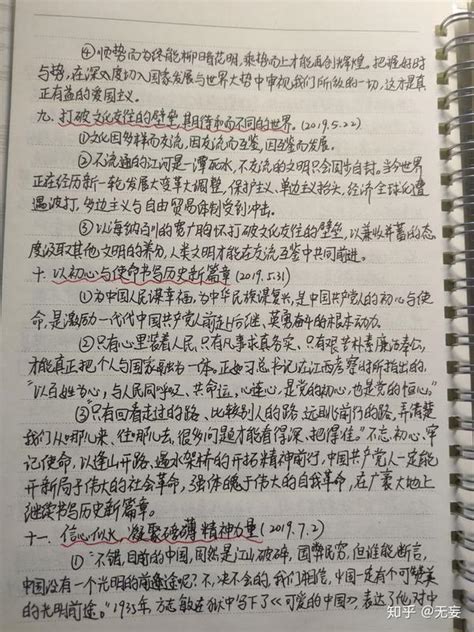 ④顺势而为终能柳暗花明，乘势而上才能再创辉煌。把握好时
与势，在深入度切入国家发展与世界大势中审视我们所做的一切，这才是真
正有益的爱国主义。
九、打破文化交往的壁垒，期待和而不同的世界。(2019.5.22)
①文化因多样而交流，因交流而互鉴，因互鉴而发展。
②不流通的江河是一潭死水，不交流的文明只会固步自封。当今世界
正在经历新一轮发展大变革大调整，保护主义、单边主义抬头，经济全球化遭
遇波折，多边主义与自由贸易体制受到冲击。
③以海纳百川的宽广胸怀打破文化交往的壁垒，以兼收并蓄的态
度汲取其他文明的养分，人类文明才能在交流互鉴中共同前进。
十、以初心与使命书写历史新篇章(2019.5.31)
①为中国人民谋幸福，为中华民族谋复兴，是中国共产党人的初心与使
命，是激励一代代中国共产党人前赴后继、英勇奋斗的根本动力。
②只有心里装着人民、只有凡事求真务实、只有艰苦朴素廉洁奉公，
才能真正把个人与国家融为一体。正如习总书记在江西考察时所指出的，
“以百姓为心，与人民同呼吸、共命运、心连心，是党的初心，也是党的恒心。”
③只有回看走过的路、比较别人的路、远眺前行的路，弄清楚
我们从哪儿来、往哪儿去，很多问题才能看得深、把得准。“不忘初心、牢
记使命，以逢山开路、遇水架桥的开拓精神前行，中国共产党人一定能
开新局于伟大的社会革命，强体魄于伟大的自我革命，在广袤大地上
继续书写历史新篇章。
十一、信心似火，凝聚磅礴精神力量(2019.7.2)
①“不错，目前的中国，固然是江山破碎，国弊民穷，但谁能断言，
中国没有一个光明的前途呢？不，决不会的，我们相信，中国一定有个可赞美
的光明前途。”1935年，方志敏在狱中写下了《可爱的中国》，表达了他对中
知乎 @无妄